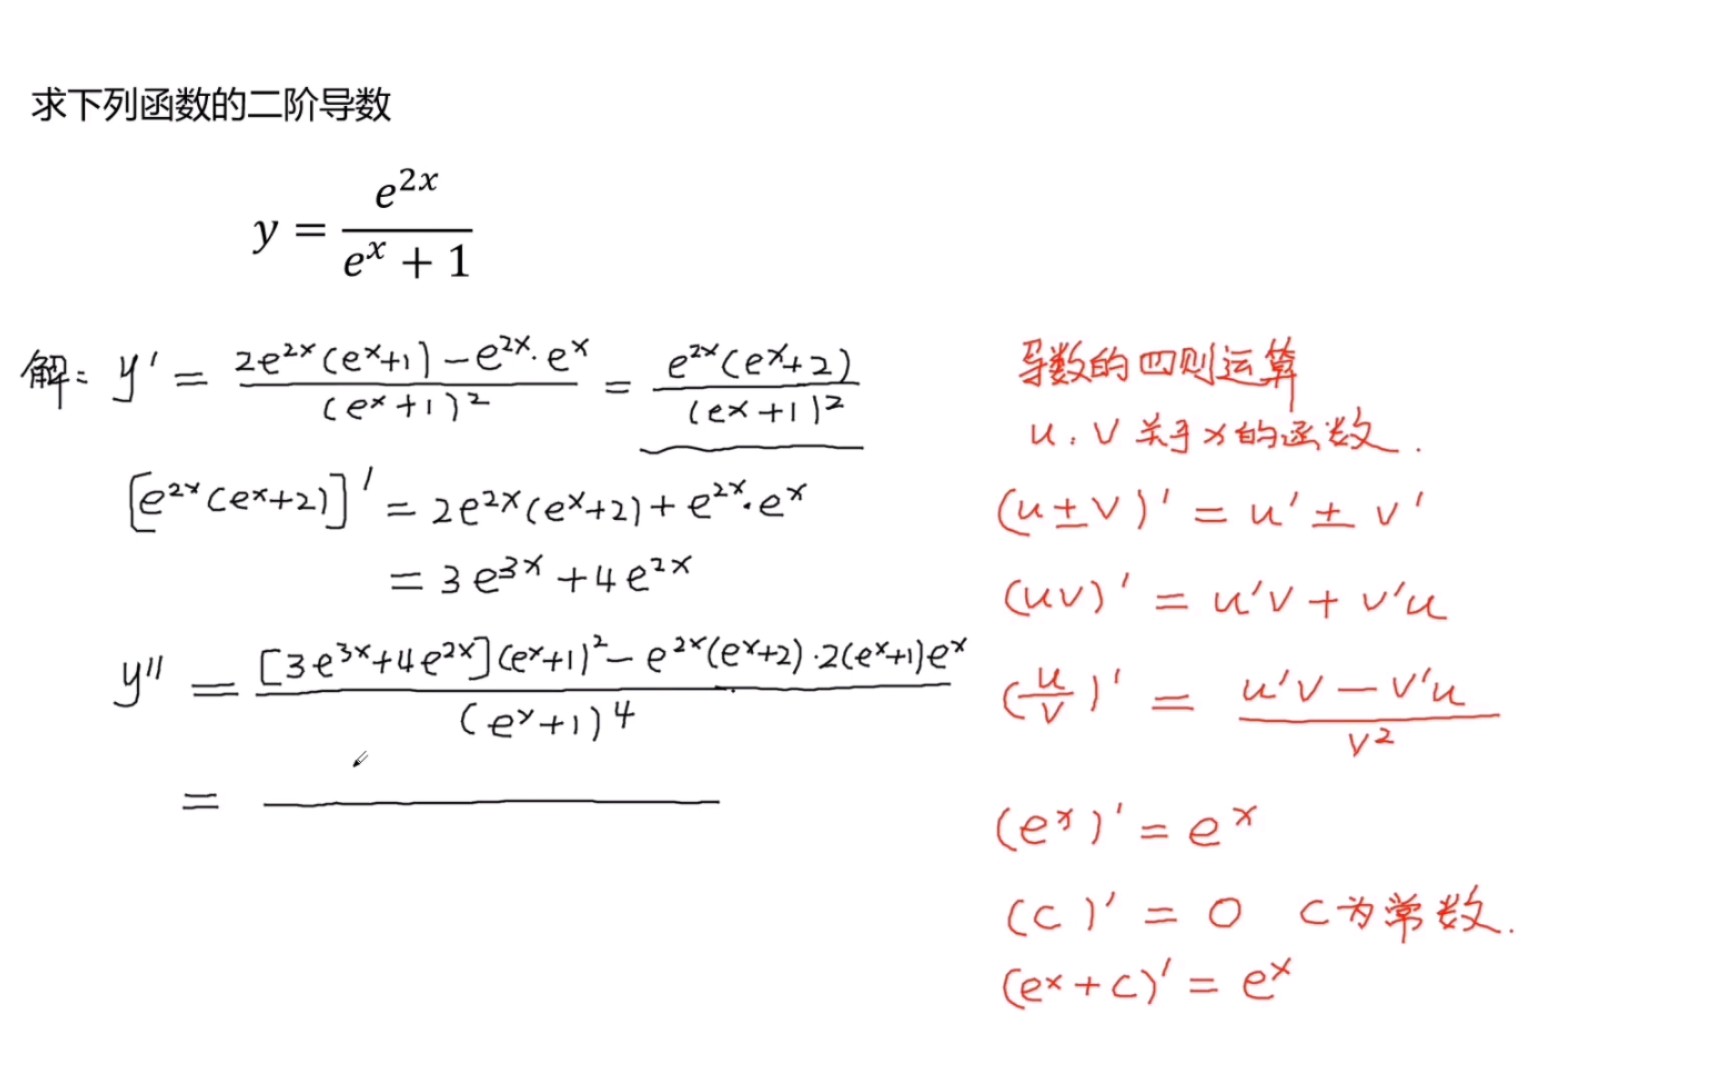 求下列函数的二阶导数
y = e^{2x} / (e^x + 1)
解: y' = [2e^{2x}(e^x+1) - e^{2x}·e^x] / (e^x+1)^2 = e^{2x}(e^x+2) / (e^x+1)^2
[e^{2x}(e^x+2)]' = 2e^{2x}(e^x+2) + e^{2x}·e^x
= 3e^{3x} + 4e^{2x}
y'' = {[3e^{3x}+4e^{2x}](e^x+1)^2 - e^{2x}(e^x+2)·2(e^x+1)e^x} / (e^x+1)^4
=
导数的四则运算
u, v 关于x的函数.
(u±v)' = u' ± v'
(uv)' = u'v + v'u
(u/v)' = (u'v - v'u) / v^2
(e^x)' = e^x
(c)' = 0 c为常数.
(e^x+c)' = e^x